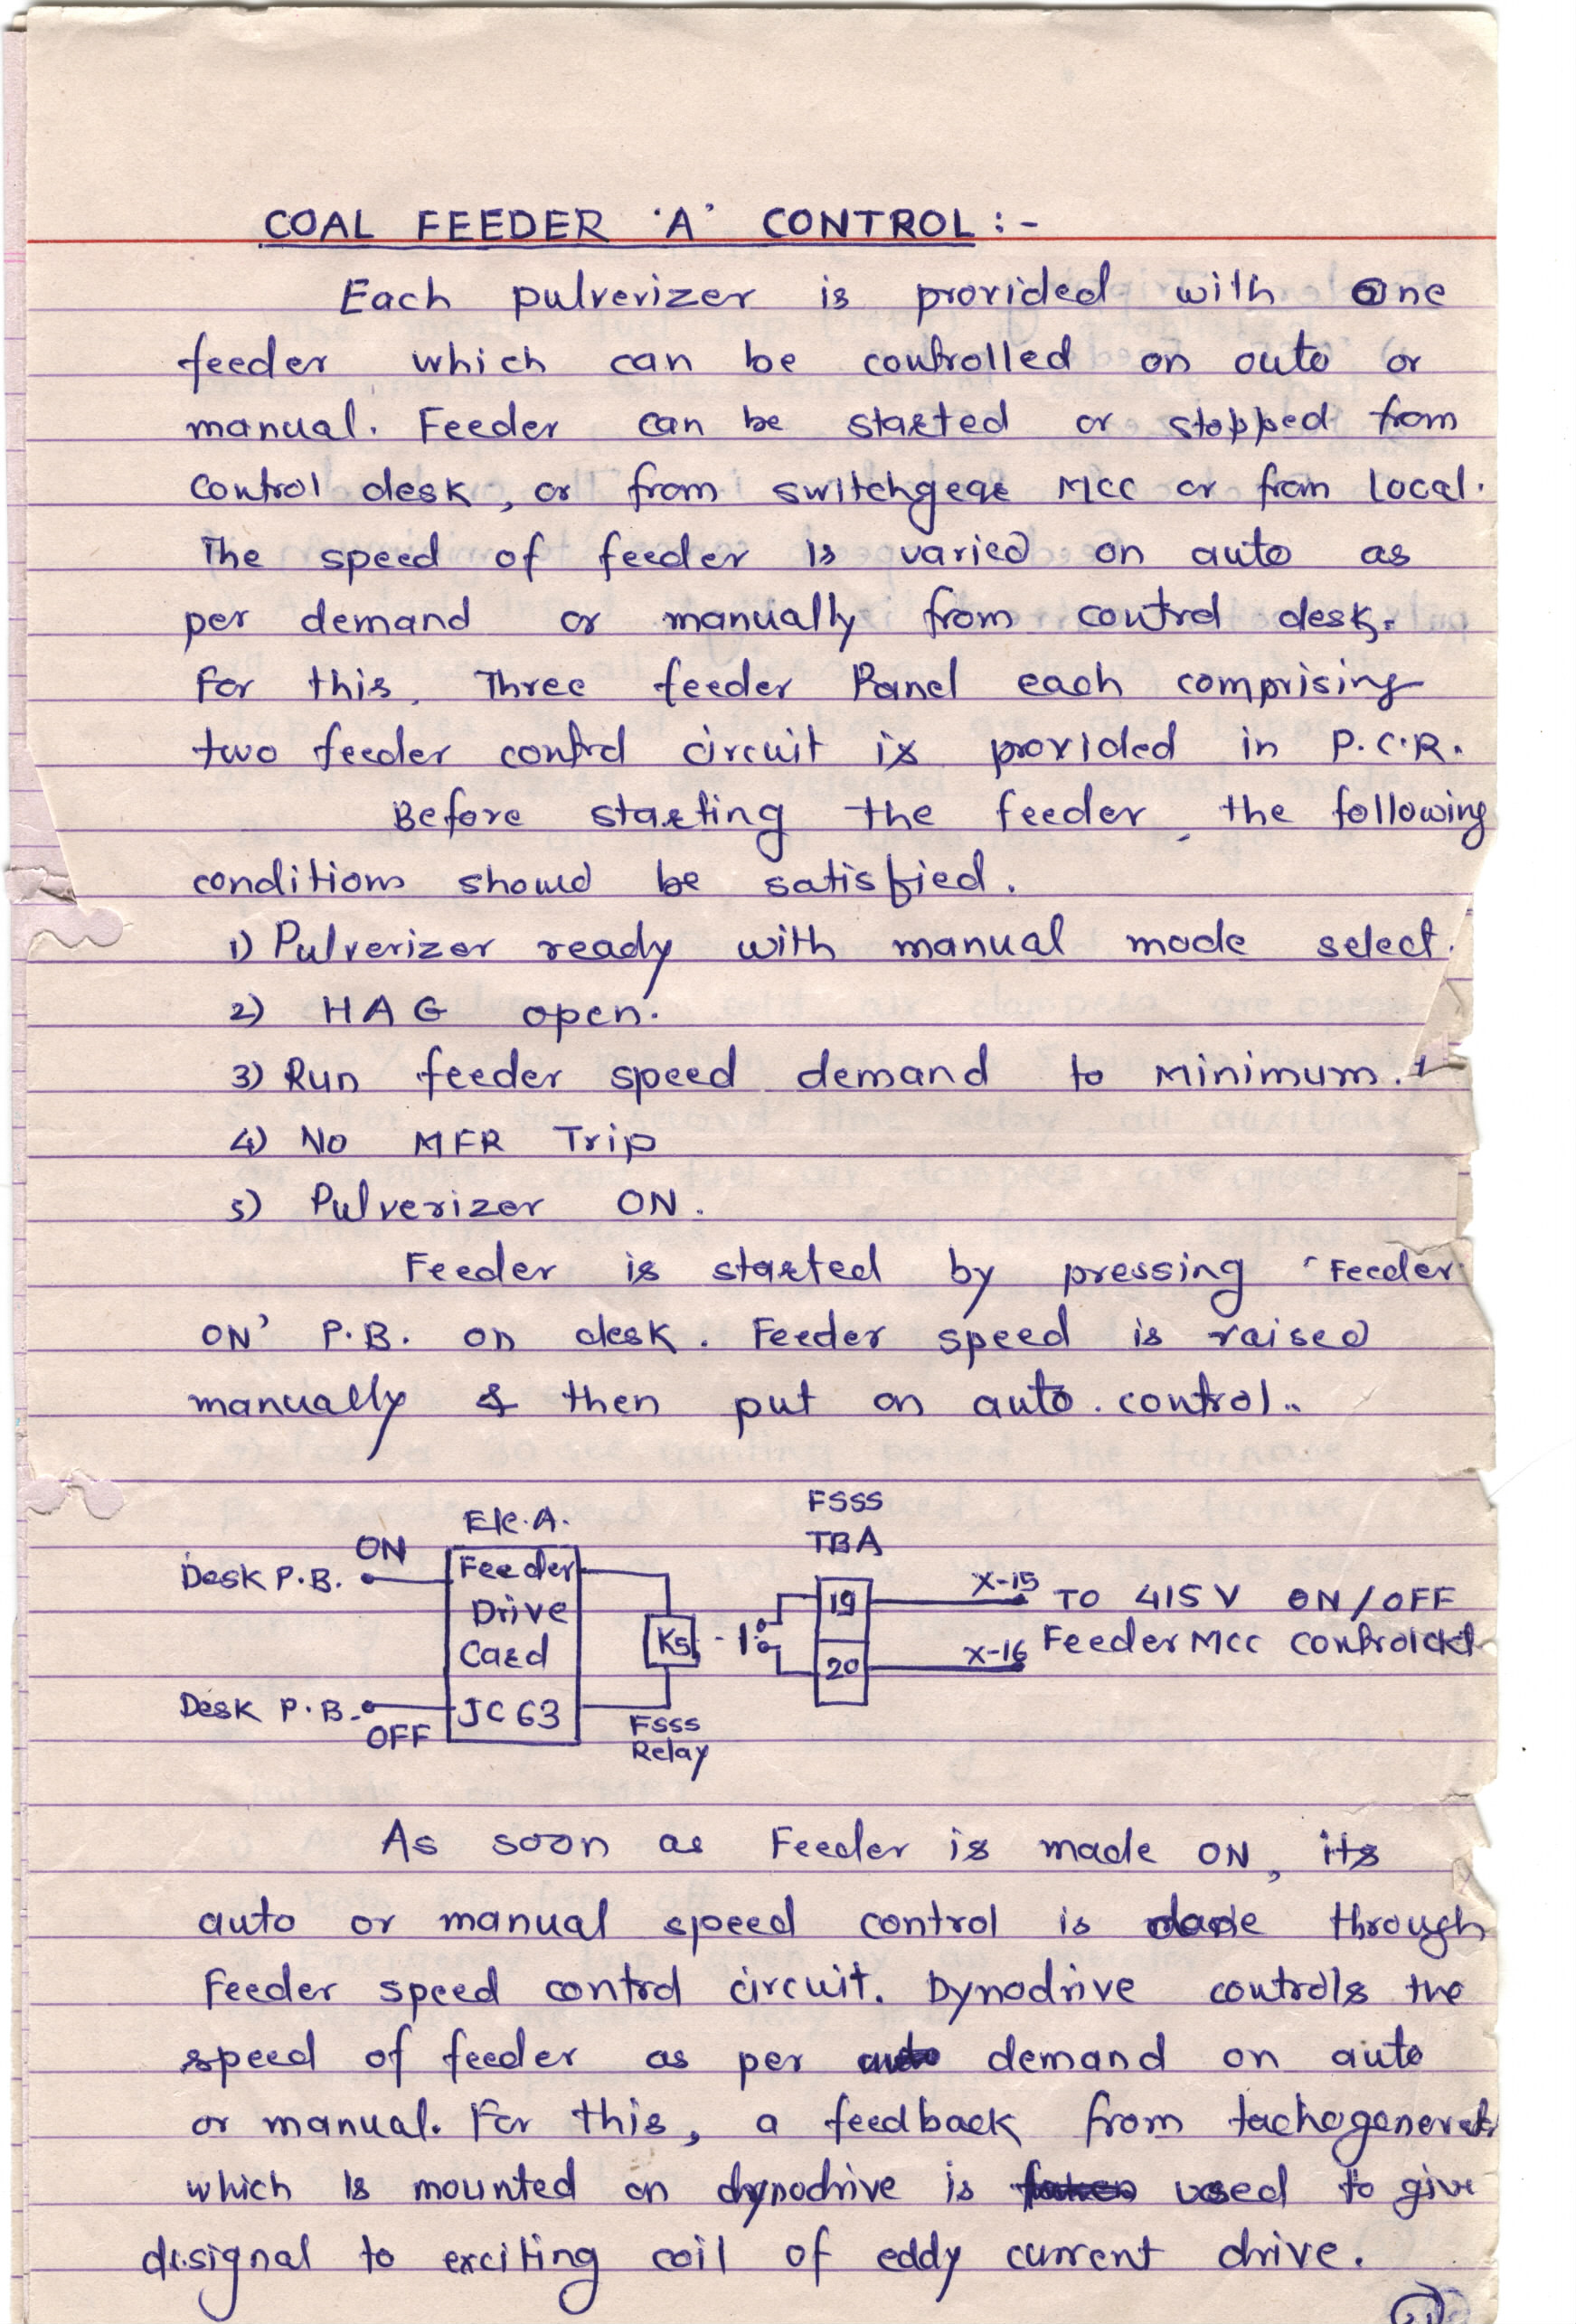 COAL FEEDER 'A' CONTROL :-
Each pulverizer is provided with One
feeder which can be controlled on auto or
manual. Feeder can be started or stopped from
control desk, or from switchgear MCC or from local.
The speed of feeder is varied on auto as
per demand or manually from control desk.
For this, Three feeder Panel each comprising
two feeder control circuit is provided in P.C.R.
Before starting the feeder, the following
conditions should be satisfied.
1) Pulverizer ready with manual mode select.
2) HAG open.
3) Run feeder speed demand to Minimum.
4) No MFR Trip
5) Pulverizer ON.
Feeder is started by pressing 'Feeder
ON' P.B. on desk. Feeder speed is raised
manually & then put on auto control.
FSSS
TBA
Desk P.B. ON
Feeder
Drive
Card
JC 63
Desk P.B. OFF
K5
FSSS
Relay
19
20
X-15
X-16
TO 415V ON/OFF
Feeder MCC Control ckt
As soon as Feeder is made ON, its
auto or manual speed control is through
Feeder speed control circuit. Dynodrive controls the
speed of feeder as per demand on auto
or manual. For this, a feedback from
which is mounted on dynodrive is used to give
signal to exciting coil of eddy current drive.